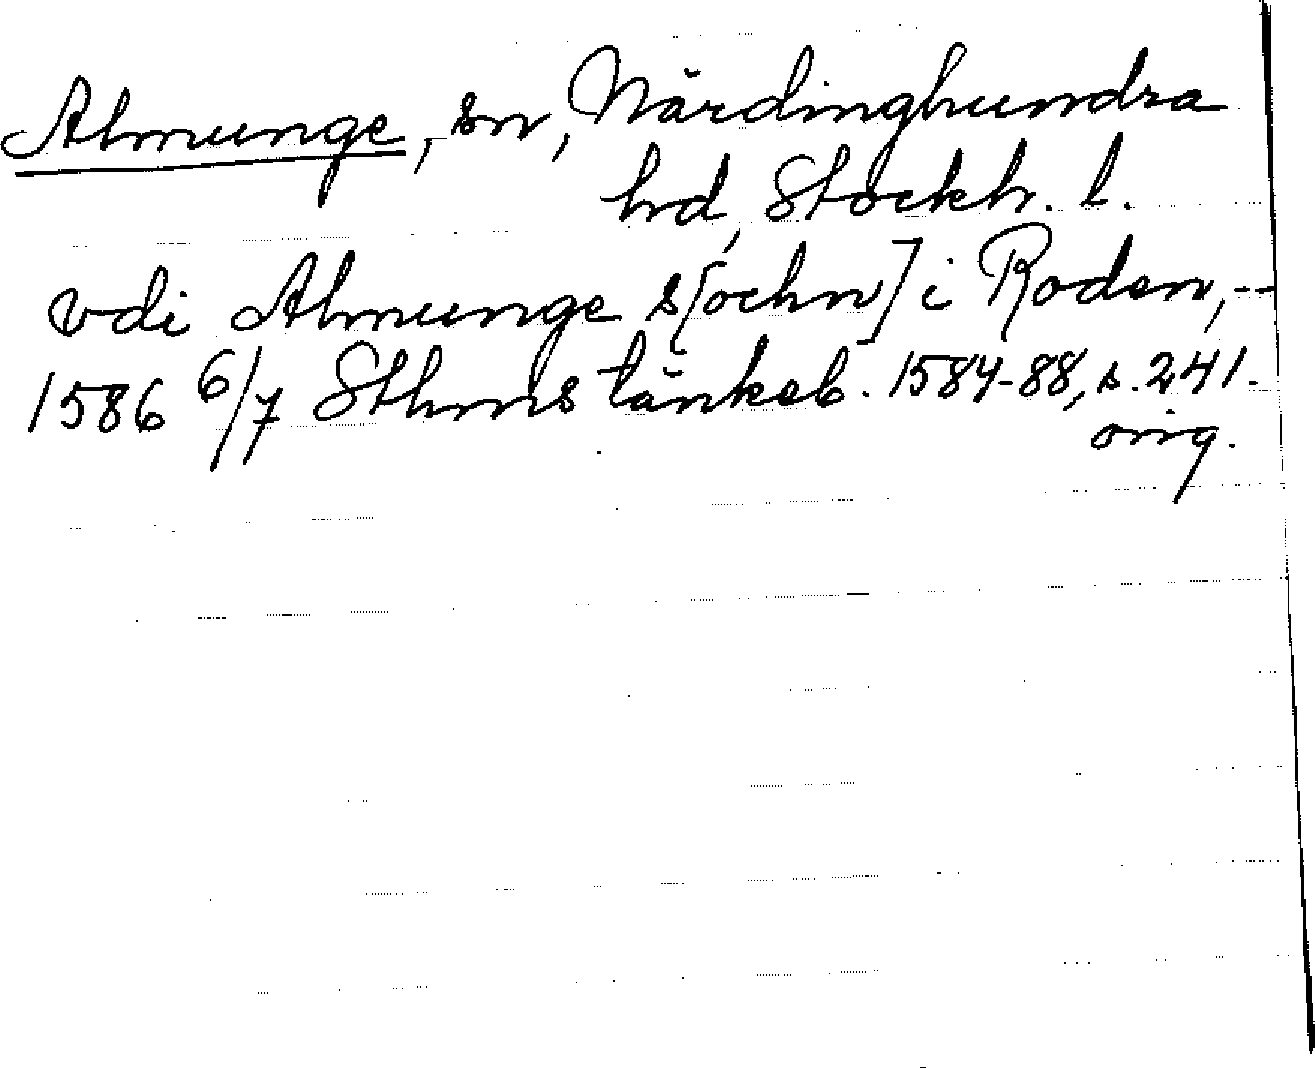 Almunge, sn, Närdinghundra
hd, Stockh. l.
vdi Almunge s[ochn] i Roden, --
1586 6/7 Sthms tänkeb. 1584-88, s. 241.
orig.